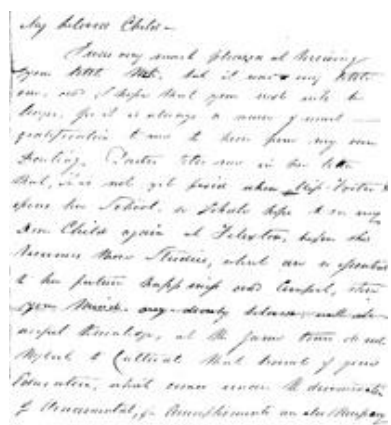 My beloved Child -
I was very much pleased at Receiving
your letter but it was very little
one, and I hope that you will write
longer, for it is always a source of great
gratification to me to hear from my own
Darling. in her letter
that, it is not yet fixed when Miss
opens her School, so I hope to see my
Dear Child again at before she
Resumes those Studies, which are so essential
to her future happiness and Comfort, store
your Mind my dearly beloved with
useful knowledge, at the same time do not
Neglect to Cultivate that branch of your
Education, which comes under the denomination
of Ornamental, for Accomplishments